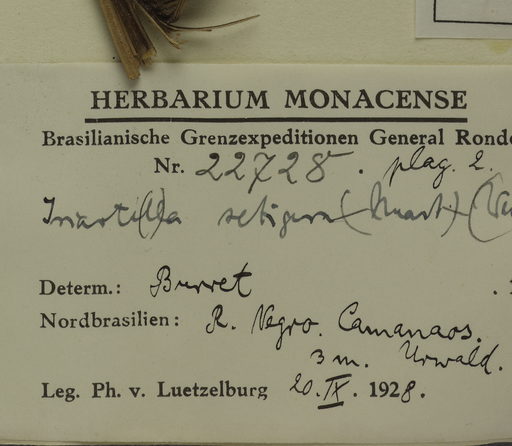 HERBARIUM MONACENSE
Brasilianische Grenzexpeditionen General Rond
Nr. 22728. plag. 2.
Iriartella setigera (Mart)
Determ.: Burret
Nordbrasilien: R. Negro. Camanaos.
3 m. Urwald.
Leg. Ph. v. Luetzelburg 20. IX. 1928.